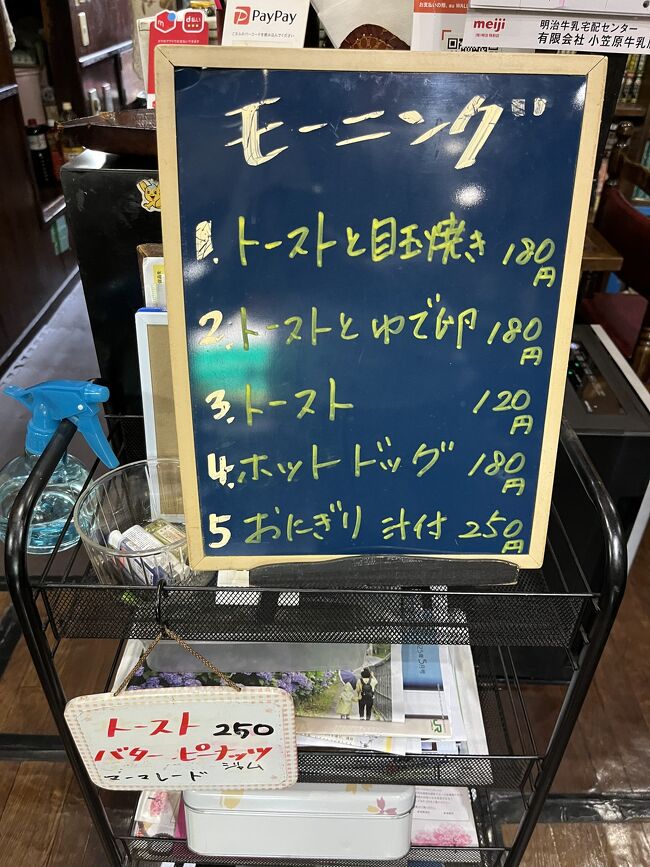 d払い
PayPay
meiji
明治牛乳宅配センター
有限会社 小笠原牛乳
モーニング
1. トーストと目玉焼き 180円
2. トーストとゆで卵 180円
3. トースト 120円
4. ホットドッグ 180円
5 おにぎり 汁付 250円
トースト 250
バター ピーナッツ
マーマレード ジャム